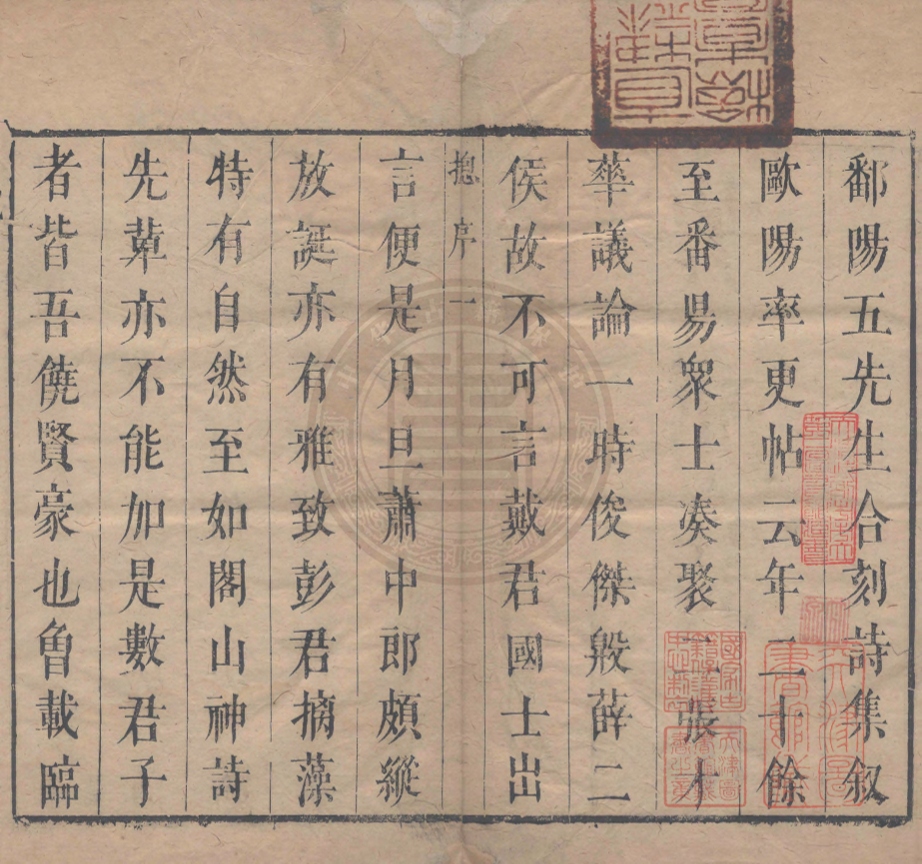 鄱陽五先生合刻詩集叙
歐陽率更帖云年二十餘
至番昜衆士凑聚二張才
華議論一時俊傑殷薛二
侯故不可言戴君國士出
摠序 一
言便是月旦蕭中郎頗縱
放誕亦有雅致彭君摛藻
特有自然至如閣山神詩
先輩亦不能加是數君子
者皆吾饒賢豪也魯載臨